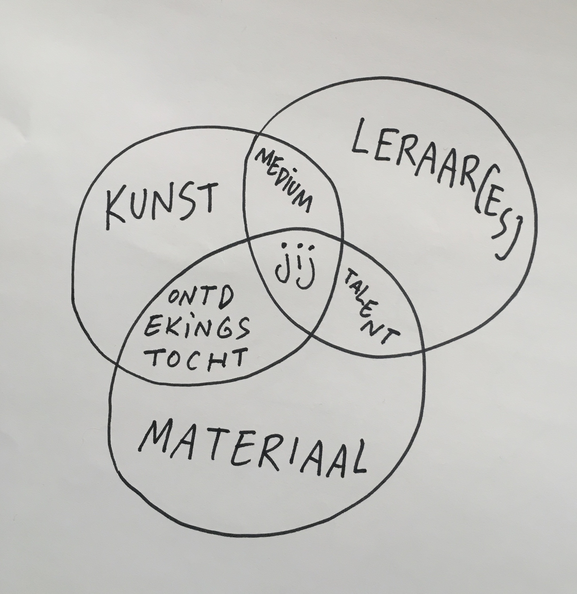 LERAAR(ES)
MEDIUM
KUNST
jij
TALENT
ONTD
EKINGS
TOCHT
MATERIAAL